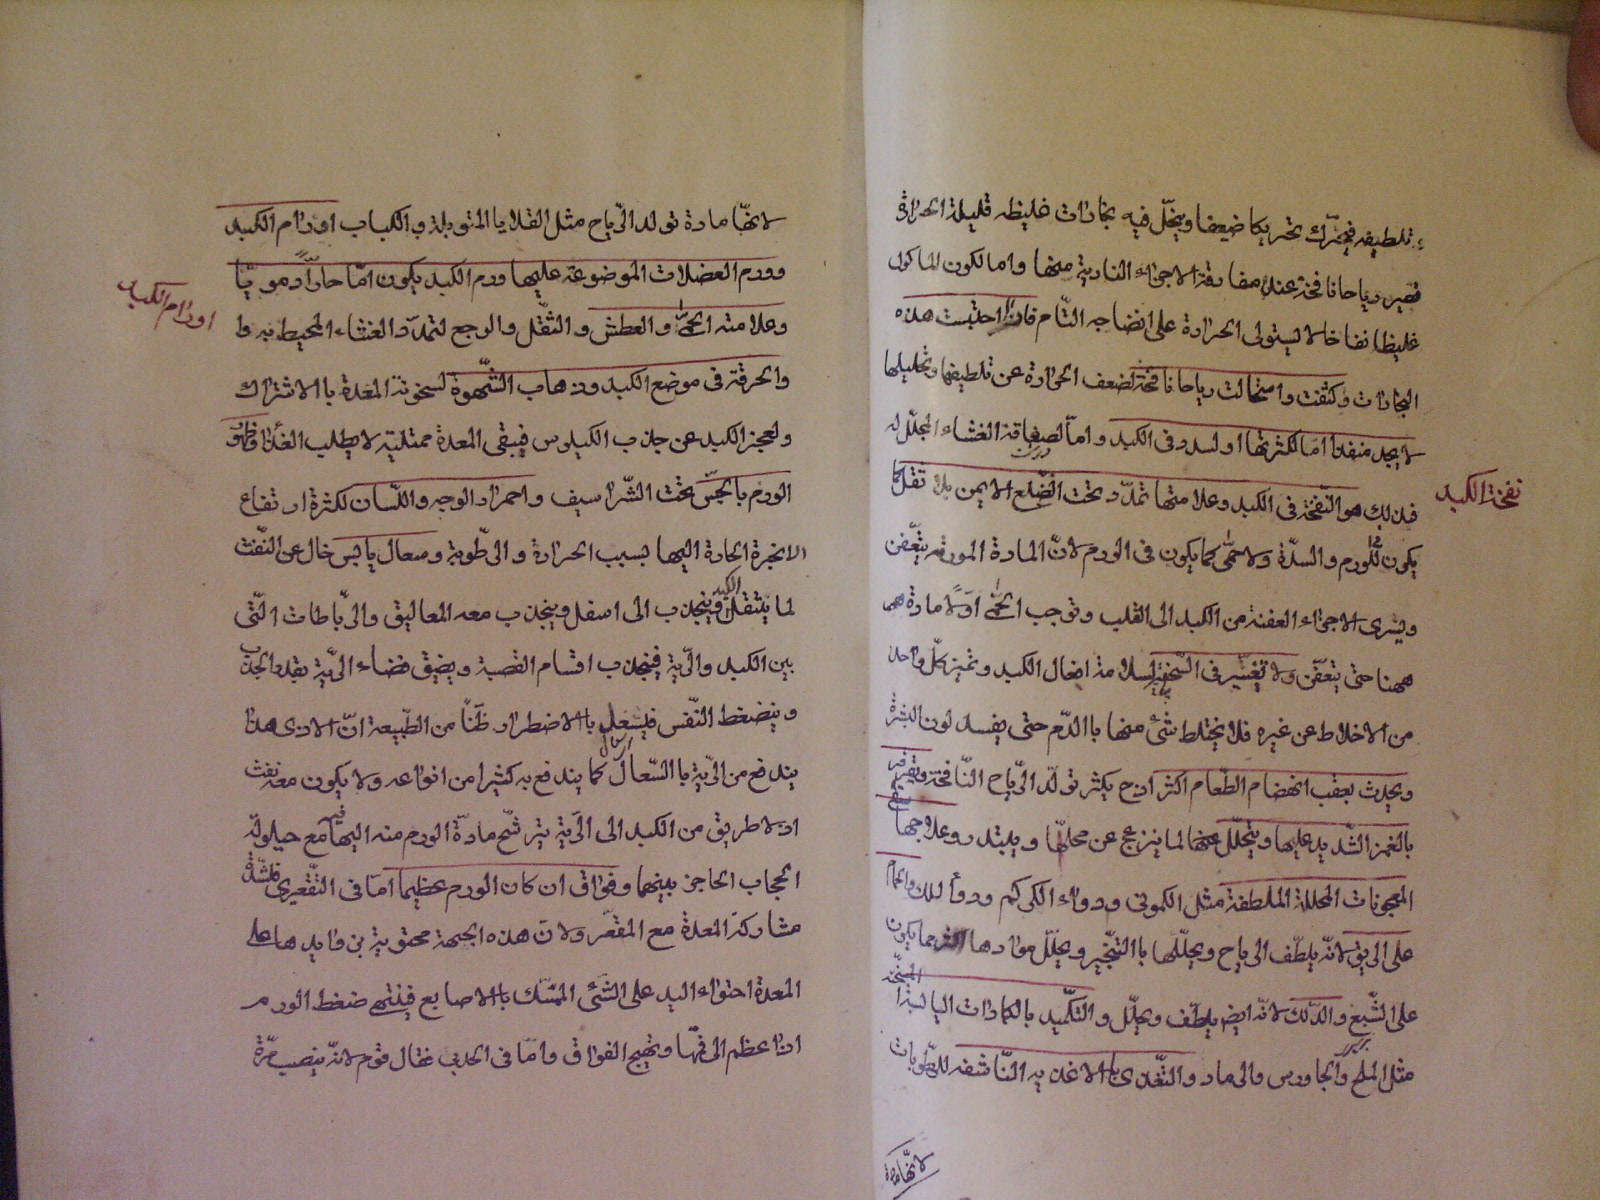 تلطيفه فيحرّك تحريكا ضعيفا ويتحلّل فيه بخارات غليظه قليلة الحرارة
فتصير رياحا نافخة عند مفارقة الاجزاء النارية منها واما لكون الماكول
غليظا نفاخا لا يستولى الحرارة على انضاجه التّام فاذا احتبست هذه
البخارات وكثفت واستحالت رياحا نافخة لضعف الحرارة عن تلطيفها وتحليلها
لا يجد منفذا امّا لكثرتها او لسدد فى الكبد وامّا لصفاقة الغشاء المجلّل له
فذلك هو النّفخة فى الكبد وعلامتها تمدّد تحت الضّلع الايمن بلا ثقل كما
نفخة الكبد
يكون للورم والسدّة ولا حمّى كما يكون فى الورم لانّ المادة المورمة يتعّفن
ويسرى الاجزاء العفنة من الكبد الى القلب وتوجب الحمّى اوّلا مادة
ههنا حتى يتعفّن ولا تغيّير فى السّحنة لسلامة افعال الكبد وتميز كلّ واحد
من الاخلاط عن غيره فلا يختلط شئ منها باالدّم حتى يفسد لون البشرة
ويحدث بعقب انهضام الطّعام اكثر اذ ح يكثر تولّد الرّياح النّافخة
بالغمز الشّديد عليها ويتحلّل عنها لما ينزعج عن محلّها ويبتدد وعلاجها
المعجونات المحللة الملطفة مثل الكمونى ودواء الكركم ودواء للك والحمام
على الريق لانّه يلطّف الرياح ويحلّلها باالتبخّير ويحلّل موادها اكثر مما يكون
على الشّبع والدّلك لانّه ايضا يلطّف ويحلّل والتكّميد بالكمادات اليابسة المسخّنة
مثل الملح والجاورس والرماد والتّغذى باالاغذيه النّاشفه للرّطوبات
لانّها مادة
لانّها مادة تولد الرّياح مثل القلايا المتوبلة والكباب اورام الكبد
وورم العضلات الموضوعة عليها ورم الكبد يكون امّا حارّا دمويّا
اورام الكبد
وعلامته الحمّى والعطش والثقّل والوجع لتمدّد الغشاء المحيط به
والحرقة فى موضع الكبد وذهاب الشّهوة لسخونة المعدة باالاشتراك
ولعجز الكبد عن جذب الكيلوس فيبقى المعدة ممتلية لا يطلب الغذا
الورم بالجسّ تحت الشّراسيف واحمرار الوجه واللّسان لكثرة ارتفاع
الابخرة الحادة اليها بسبب الحرارة والرّطوبة وسعال يابس خال عن النّفث
لما يثقل الكبد وينجذب الى اسفل وينجذب معه المعاليق والرّباطات الّتى
بين الكبد والرّية فينجذب اقسام القصبة ويضيق فضاء الرّية بقدر الجذب
وينضغط النّفس فيسعل باالاضطرار ظنّاً من الطّبيعة انّ الاذى هذا
يندفع من الرّية باالسّعال كما يندفع به كثيرا من انواعه ولا يكون معه نفث
اذ لا طريق من الكبد الى الرّية يترشّح مادّة الورم منه اليها مع حيلولة
الحجاب الحاجز بينهما وفواق ان كان الورم عظيما امّا فى التّقعيرى فلشدّة
مشاركة المعدة مع المقعّر ولانّ هذه الجهة محتوية بزوايدها على
المعدة احتواء اليد على الشّئ الممّسك باالاصابع فينتهى ضغط الورم
اذا عظم الى فمّها ويهيج الفواق وامّا فى الحدبى فقال قوم لانّه ينصب مرّة